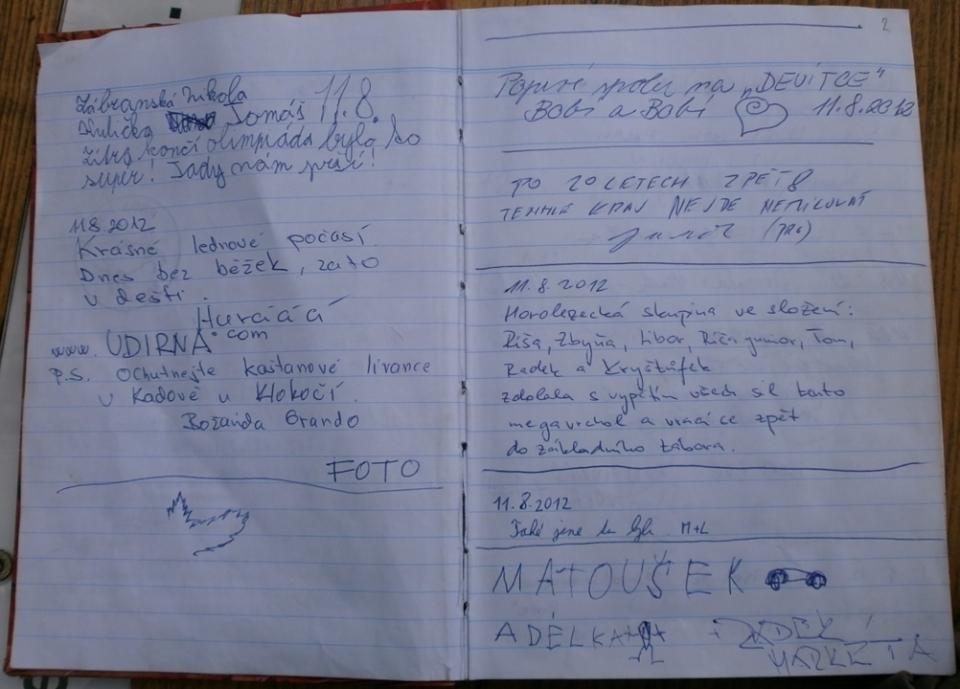 Zábranská Nikola 11.8.
Tomáš
končí olimpiáda bylo to
super! Tady nám prší!
11.8.2012
Krásné lednové počasí
Dnes bez běžek, zato
v dešti.
Hurááá
www.UDIRNA.com
P.S. Ochutnejte kaštanové lívance
v Kadově u Klokočí.
Božanda Grando
FOTO
2
Poprvé spolu na „DEVÍTCE"
Bobi a Bobi 11.8.2012
PO 20 LETECH ZPĚT
KRAJ NEJDE NEMILOVAT
11.8.2012
Horolezecká skupina ve složení:
Ríša, Zbyňa, Libor, Ríša junior, Tom,
Radek a Kryštůfek
zdolala s vypětím všech sil tento
megavrchol a vrací ce zpět
do základního tábora.
11.8.2012
Také jsme tu byli M+L
MATOUŠEK
ADÉLKA
MARKÉTA